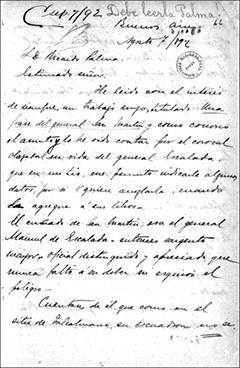 Ag 7/92 Debe leerla Palma.
Buenos Aires
Agosto 7/92
S.D. Ricardo Palma.
Estimado señor:
He leido con el interés
de siempre, un trabajo suyo, titulado - Una
frase del general San Martín y como conozco
el asunto y lo he oido contar por el coronel
en vida del general Escalada,
que era mi tio, me permito indicarle algunos
datos, por si quiere ampliarla, cuando
la agregue a sus libros.
El cuñado de San Martín, era el general
Manuel de Escalada - entonces sargento
mayor, oficial distinguido y apreciado, que
nunca faltó a su deber ni esquivó el
peligro.
Cuentan de él que como en el
sitio de Talcahuano, su escuadron no se